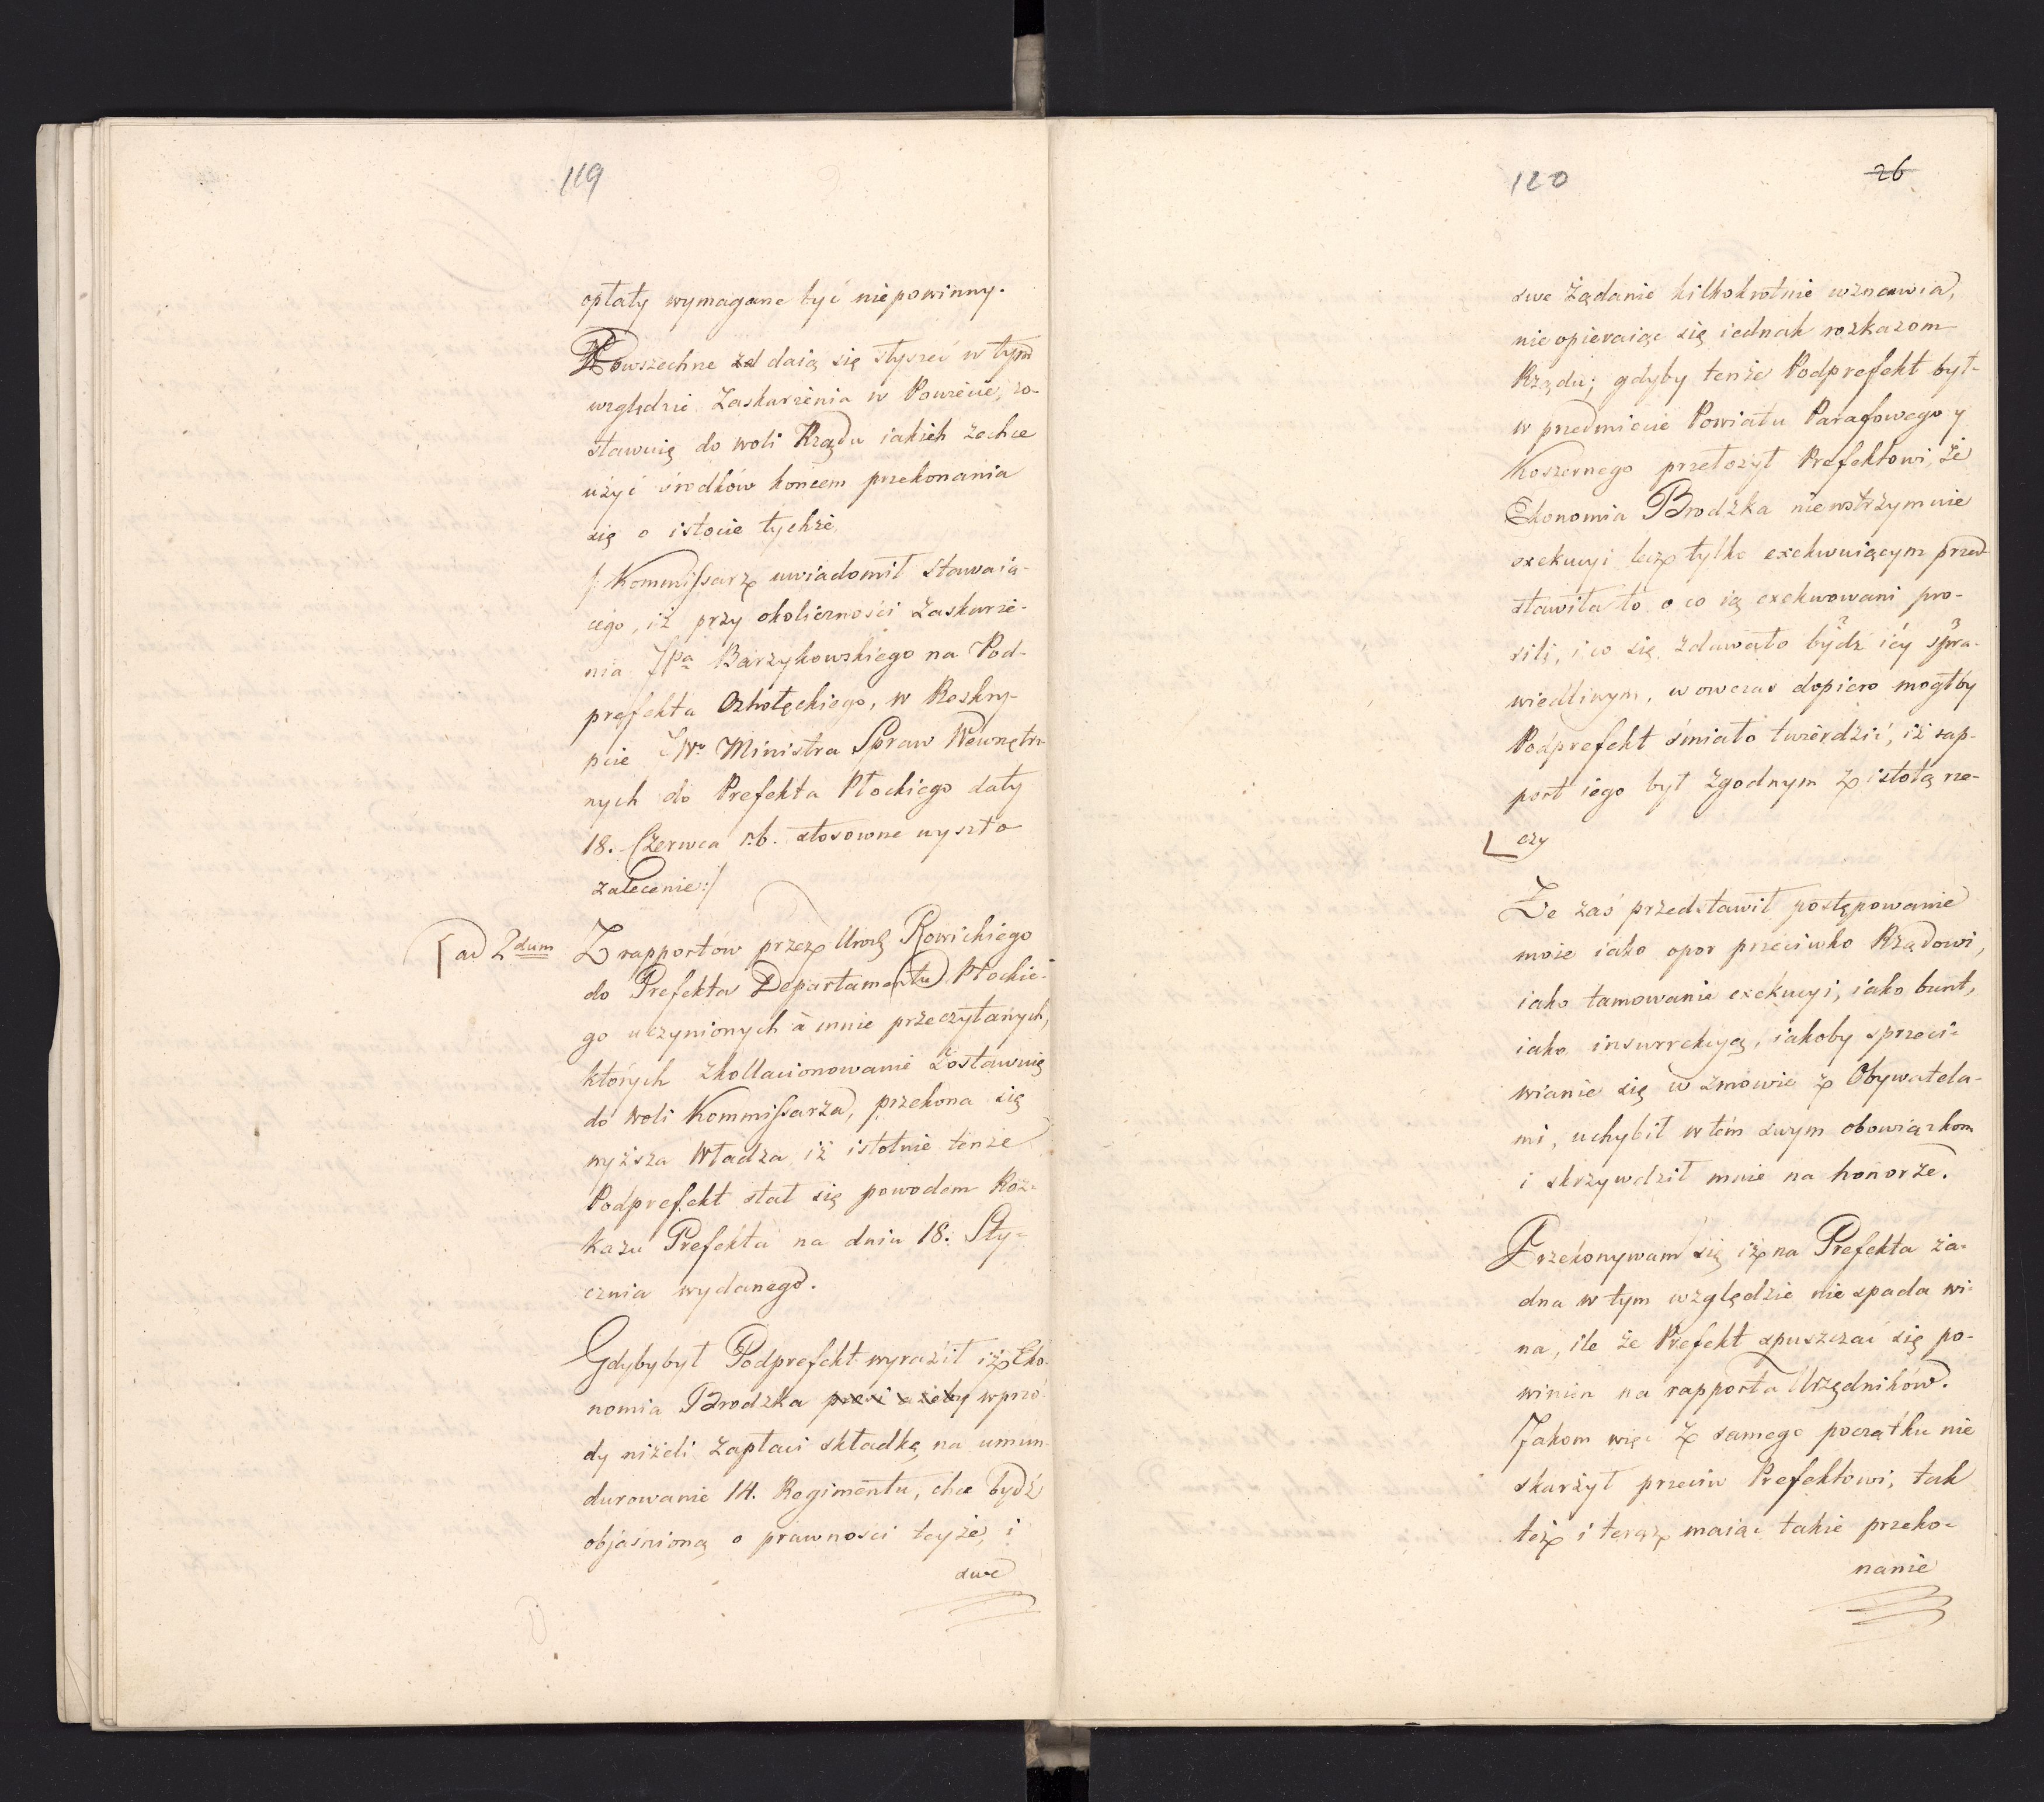 119
opłaty wymagane być niepowinny.
Powszechne daią się słyszeć w tym
względzie Zaskarżenia w Powiecie, zo-
stawuię do woli Rządu iakich zechce
użyć środków końcem przekonania
się o istocie tychże.
/: Kommissarz uwiadomił stawaią-
cego, iż przy okoliczności Zaskarże-
nia JPa Barzykowskiego na Pod-
prefekta Ostrołęckiego, w Reskry-
pcie JW. Ministra Spraw Wewnętrz-
nych do Prefekta Płockiego daty
18. Czerwca r.b. stosowne wyszło
zalecenie :/
ad 2dum Z rapportów przez Urodz Rowickiego
do Prefekta Departamentu Płockie-
go uczynionych à mnie przeczytanych,
których zkollacionowanie zostawuię
do woli Kommissarza, przekona się
wyższa Władza iż istotnie tenże
Podprefekt stał się powodem Roz-
kazu Prefekta na dniu 18. Sty-
cznia wydanego.
Gdybybył Podprefekt wyraził iż Eko-
nomia Brodzka wprzó-
dy niżeli Zapłaci składkę na umun-
durowanie 14. Regimentu, chce bydź
objaśnioną o prawności teyże, i
swe
120
26
swe żądanie kilkokrotnie wznawia,
nie opieraiąc się iednak rozkazom
Rządu; gdyby tenże Podprefekt był
w przedmiocie Powiatu Parafowego y
Koszernego przełożył Prefektowi, że
Ekonomia Brodzka niewstrzymuie
exekucyi lecz tylko exekwuiącym przed-
stawiła to o co ią exekwowani pro-
sili, i co się zdawało bydz iéy spra-
wiedliwym, wowczas dopiero mogłby
Podprefekt śmiało twierdzić, iż rap-
port iego był zgodnym z istotą rze-
czy
Że zaś przedstawił postępowanie
moie iako opor przeciwko Rządowi,
iako tamowanie exekucyi, iako bunt,
iako insurrekcyą, iakoby sprzeci-
wianie się w zmowie z Obywatela-
mi, uchybił w tém swym obowiązkom
i skrzywdził mnie na honorze.
Przekonywam się iż na Prefekta ża-
dna w tym względzie nie spada wi-
na, ile że Prefekt spuszczać się po-
winien na rapporta Urzędników.
Jakom więc z samego początku nie
skarżył przeciw Prefektowi, tak
też i teraz maiąc takie przeko-
nanie